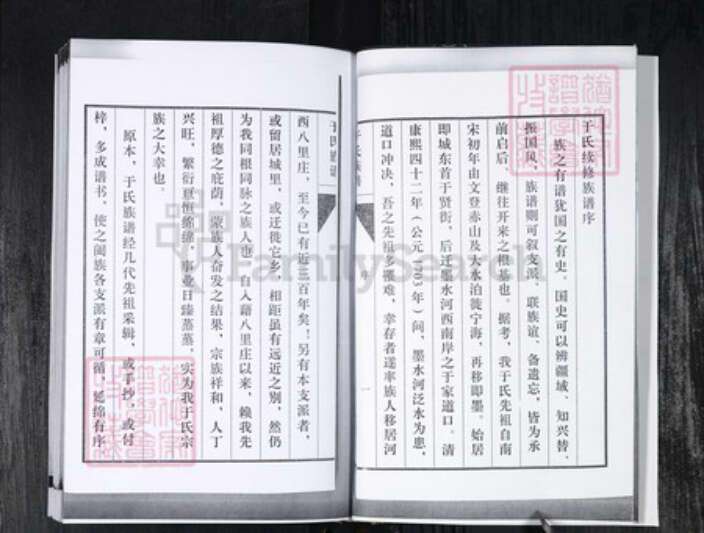 于氏续修族谱序
族之有谱犹国之有史。国史可以辨疆域、知兴替、
振国风，族谱则可叙支派、联族谊、备遗忘，皆为承
前启后、继往开来之根基也。据考，我于氏先祖自南
宋初年由文登赤山及大水泊徙宁海，再移即墨。始居
即城东首于贤街，后迁墨水河西南岸之于家道口。清
康熙四十二年（公元1703年）间，墨水河泛水为患，
道口冲决，吾之先祖多罹难，幸存者遂率族人移居河
于氏族谱
一
于氏族谱
西八里庄，至今已有近三百年矣！另有本支派者，
或留居城里，或迁徙它乡，相距虽有远近之别，然仍
为我同根同脉之族人也。自入籍八里庄以来，赖我先
祖厚德之庇荫，蒙族人奋发之结果，宗族祥和，人丁
兴旺，繁衍亘恒绵绵，事业日臻蒸蒸，实为我于氏宗
族之大幸也。
原本，于氏族谱经几代先祖采辑，或手抄，或付
梓，多成谱书，使之阖族各支派有章可循，延绵有序
FamilySearch